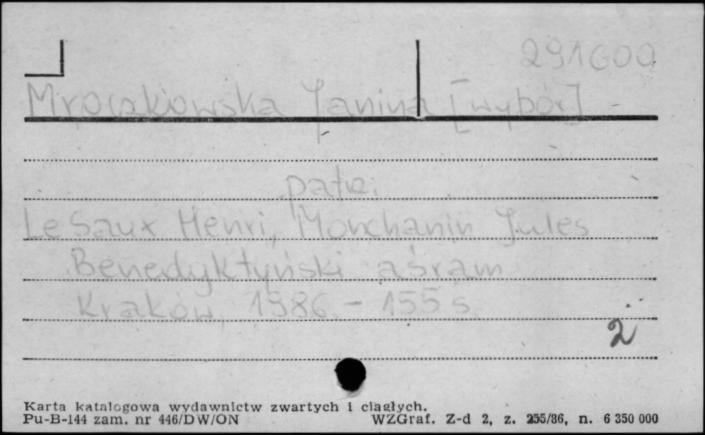 291600
Mroczkowska Janina [wybór]
patrz:
Le Saux Henri, Monchanin Jules
Benedyktyński aśram
Kraków, 1986. - 155 s.
2
Karta katalogowa wydawnictw zwartych i ciągłych.
Pu-B-144 zam. nr 446/DW/ON WZGraf. Z-d 2, z. 255/86, n. 6 350 000